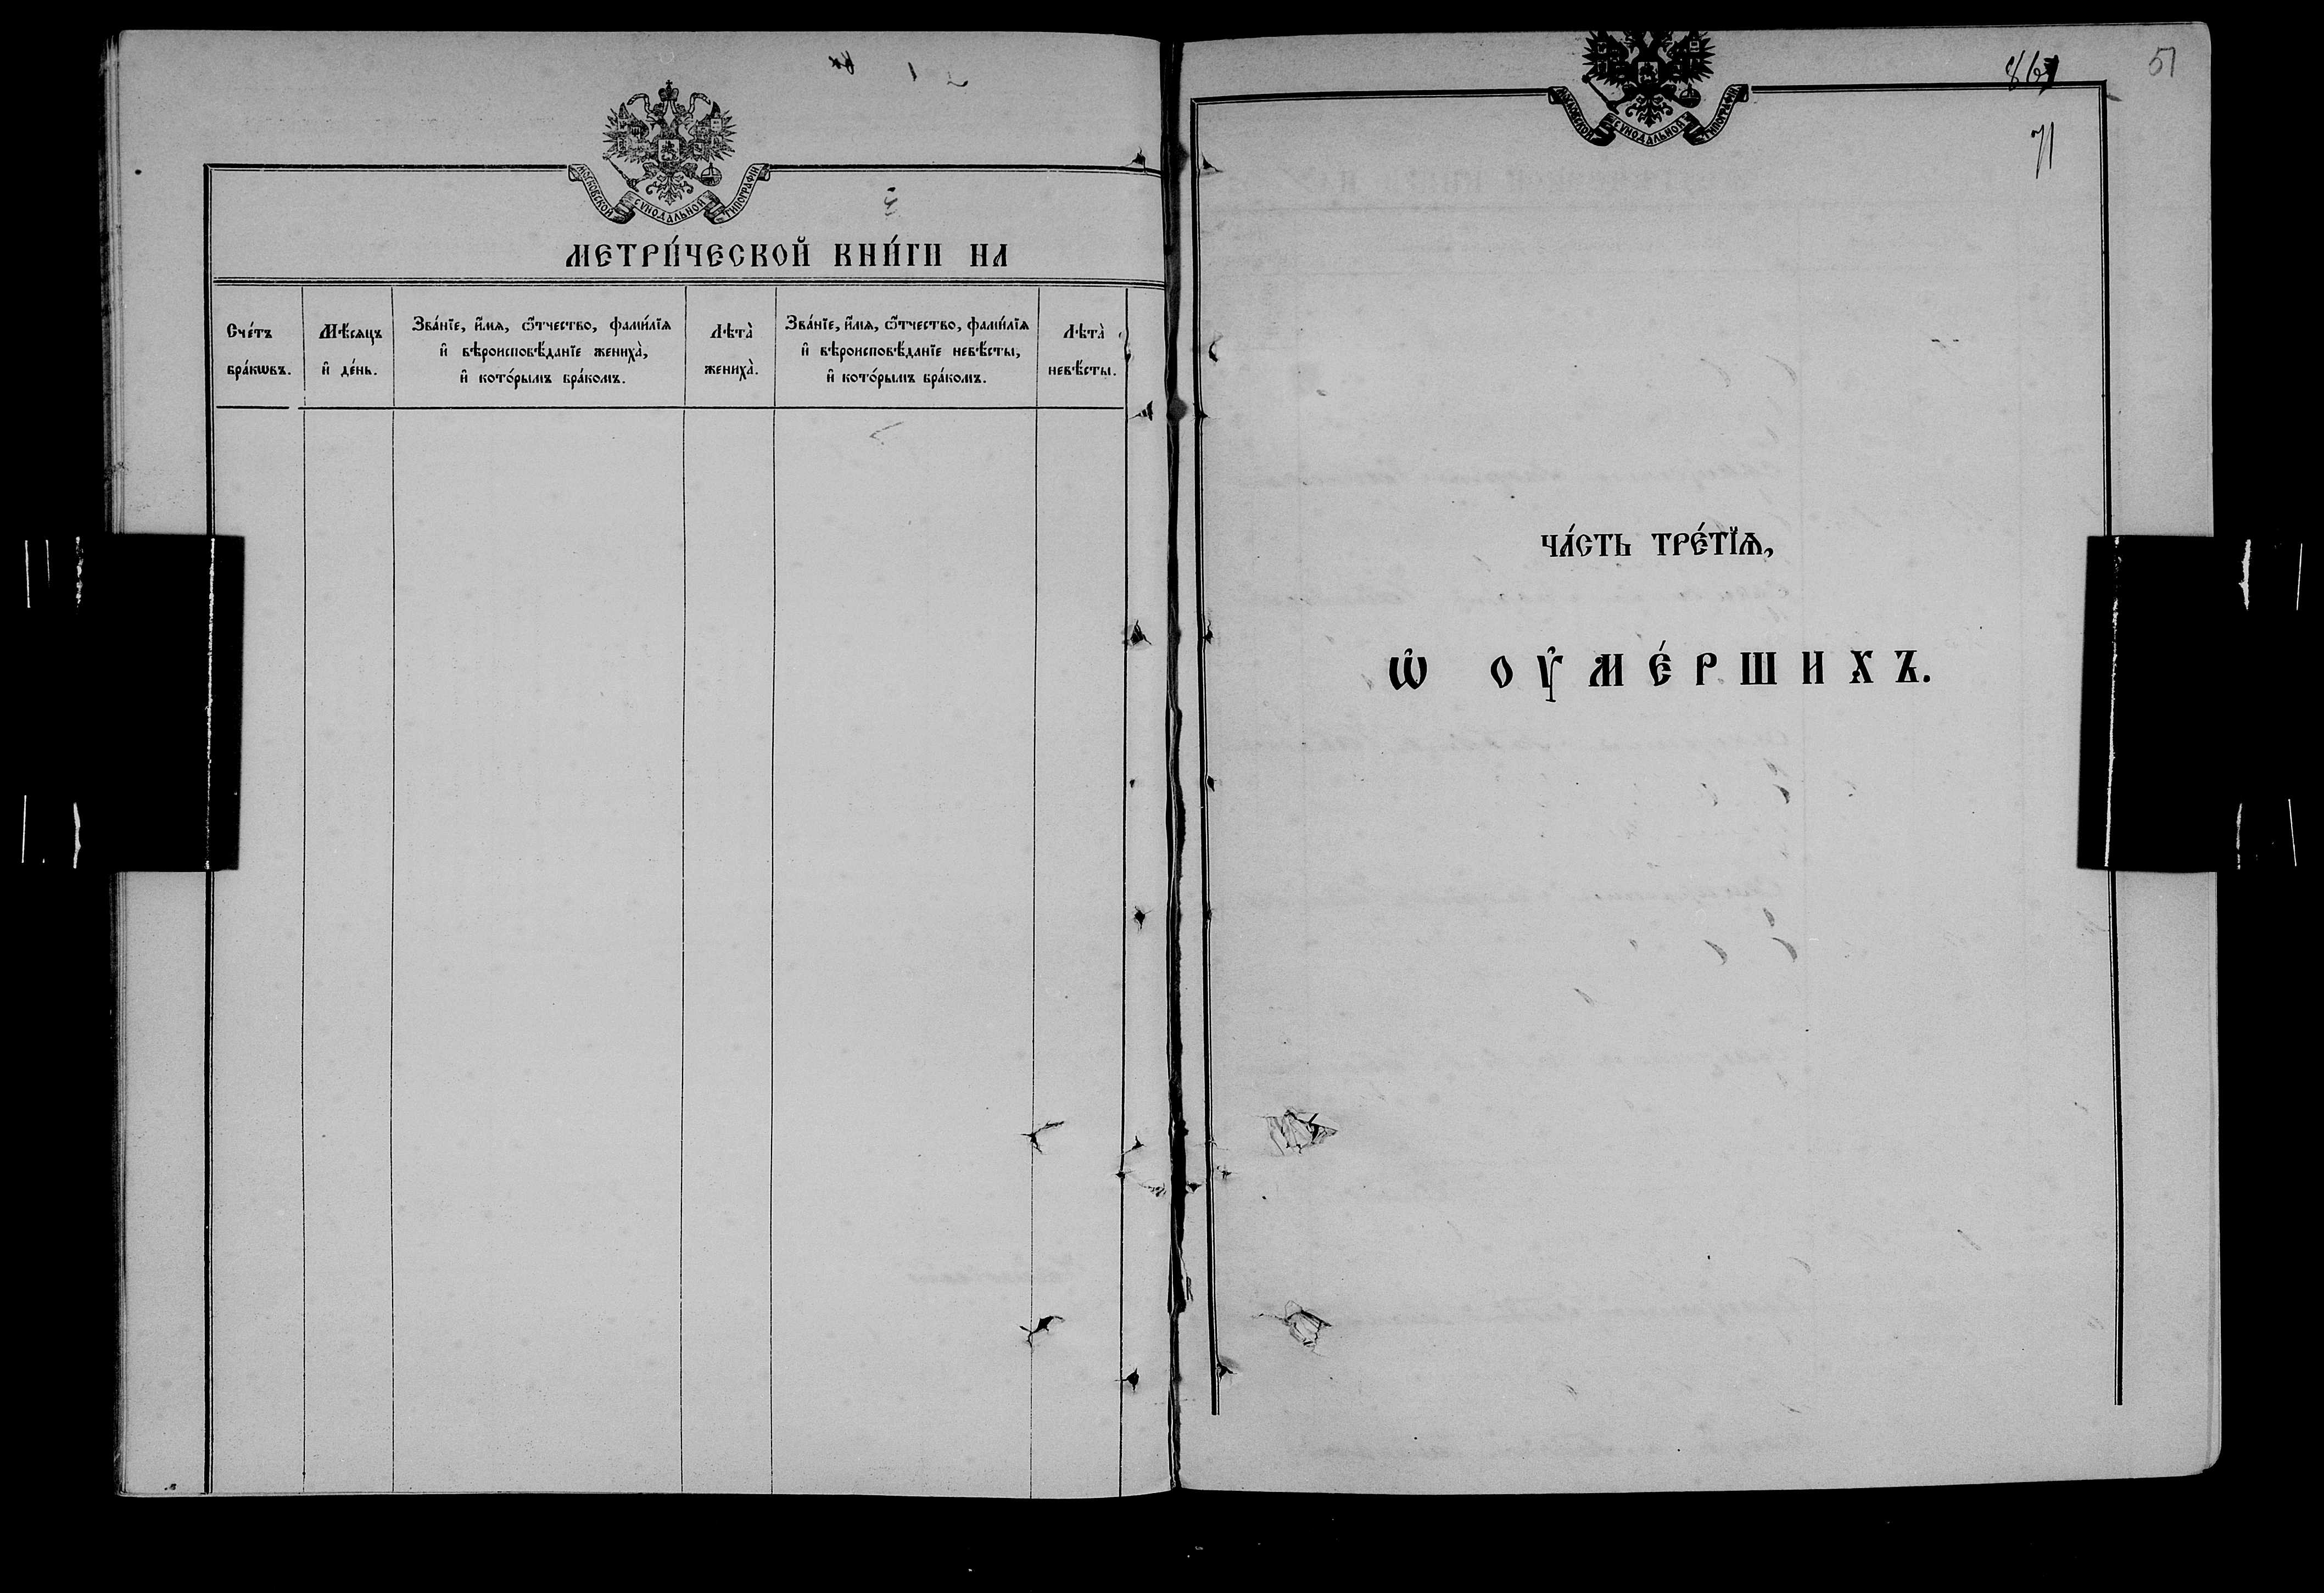 МОСКОВСКОЙ СѴНОДАЛЬНОЙ ТИПОГРАФІИ
МЕТРИ́ЧЕСКОЙ КНИ́ГИ НА
Сче́тъ
бра́кωвъ.
Мѣ́сяцъ
и҆ де́нь.
Зва́нїе, и҆́мѧ, ѻ҆́тчество, фамѝлїѧ
и҆ вѣроисповѣ́данїе жениха̀,
и҆ кото́рымъ бра́комъ.
Лѣта̀
жениха̀.
Зва́нїе, и҆́мѧ, ѻ҆́тчество, фамѝлїѧ
и҆ вѣроисповѣ́данїе невѣ́сты,
и҆ кото́рымъ бра́комъ.
Лѣта̀
невѣ́сты.
МОСКОВСКОЙ СѴНОДАЛЬНОЙ ТИПОГРАФІИ
51
71
ЧА́СТЬ ТРЕ́ТЇѦ,
Ѡ҆ ОУ҆МЕ́РШИХЪ.